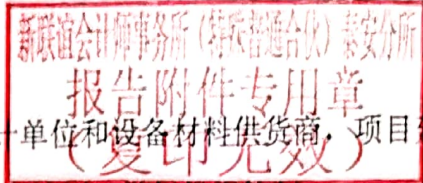 新联谊会计师事务所（特殊普通合伙）泰安分所
报告附件专用章
计单位和设备材料供货商，项目
（复印无效）